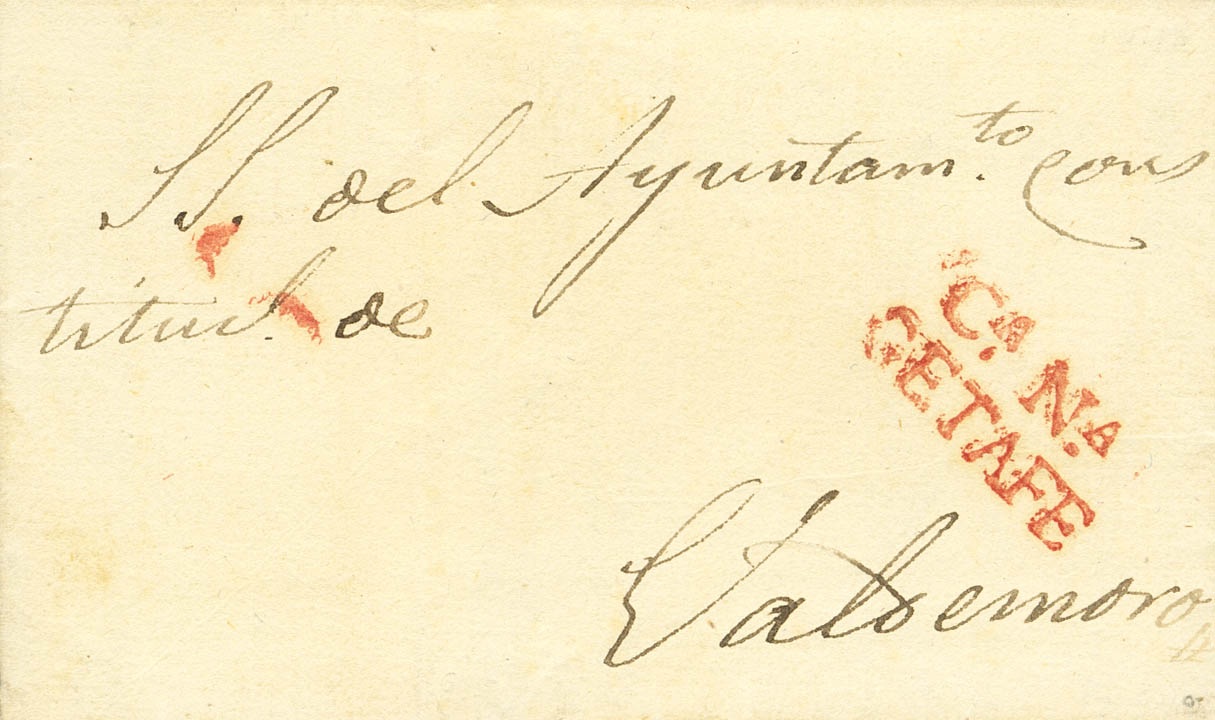 SS. del Ayuntam.to cons
tituc.l de
C.a N.a
GETAFE
Valdemoro